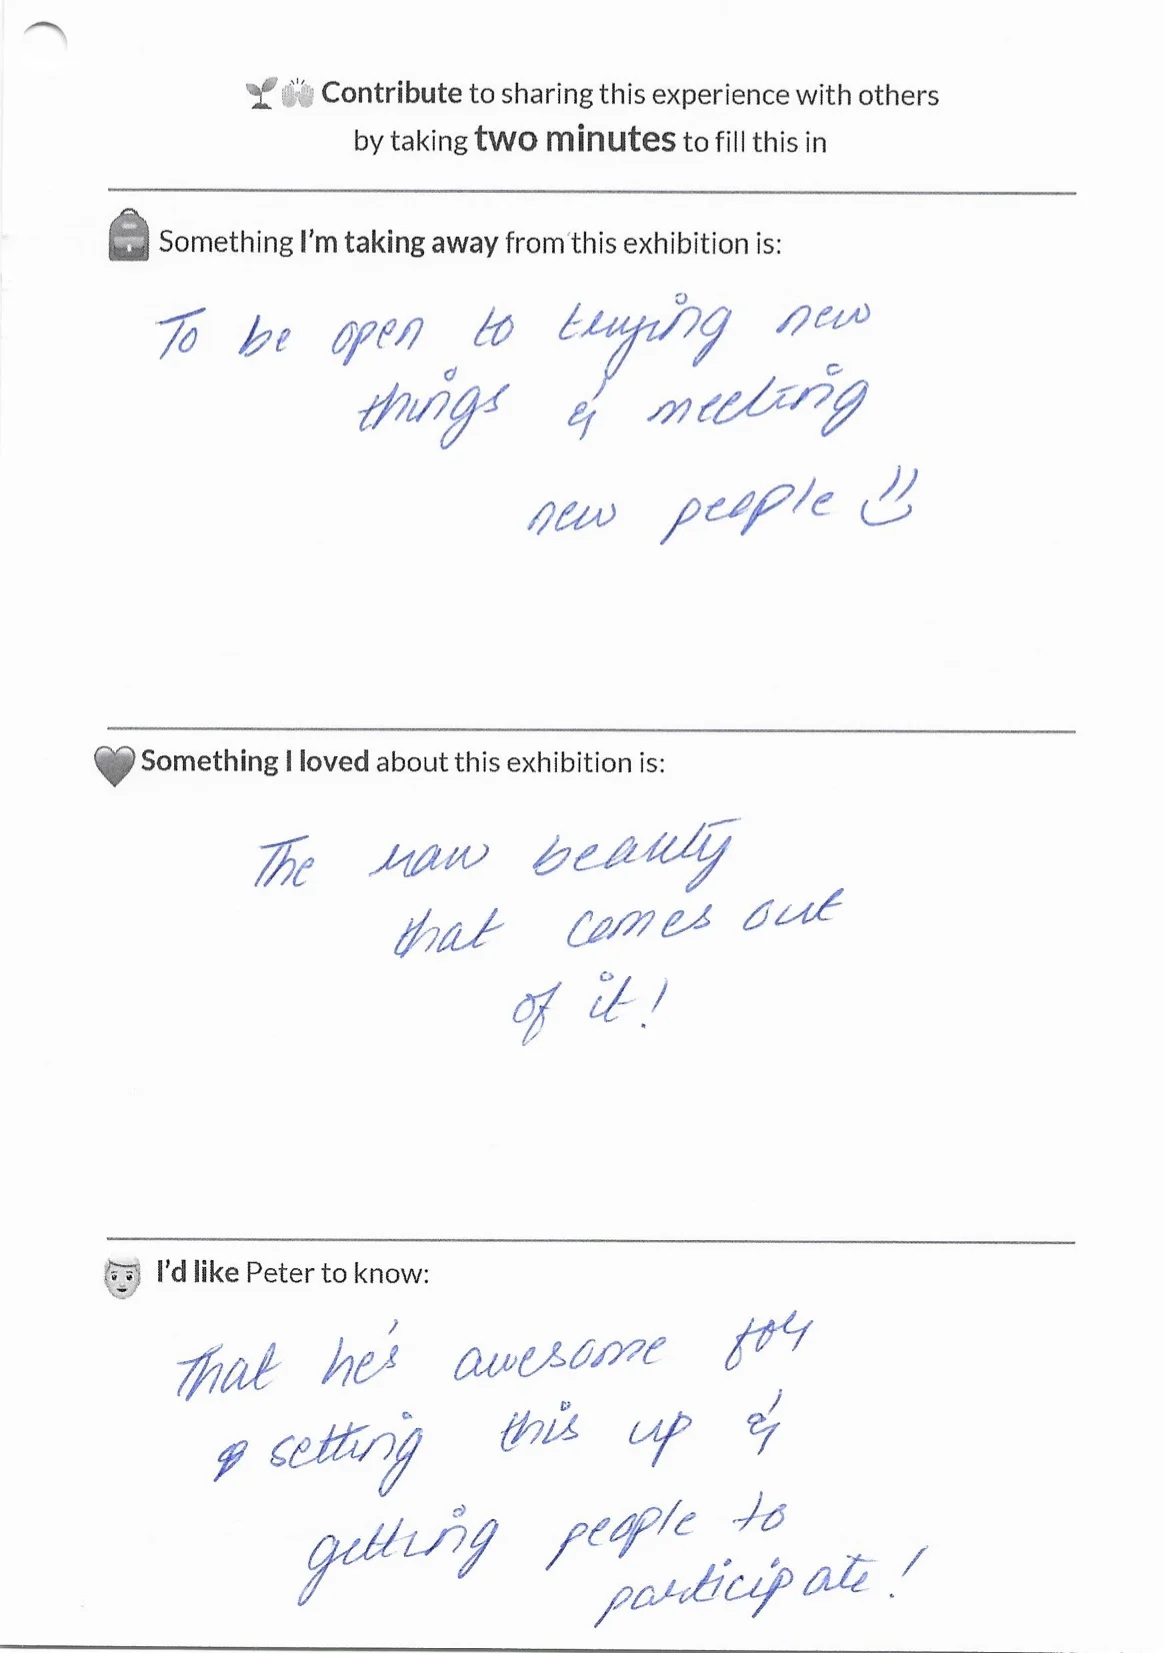 🌱🙌 Contribute to sharing this experience with others
by taking two minutes to fill this in
🎒 Something I'm taking away from this exhibition is:
To be open to trying new
things & meeting
new people
🖤 Something I loved about this exhibition is:
The raw beauty
that comes out
of it!
I'd like Peter to know:
That he's awesome for
setting this up &
getting people to
participate!